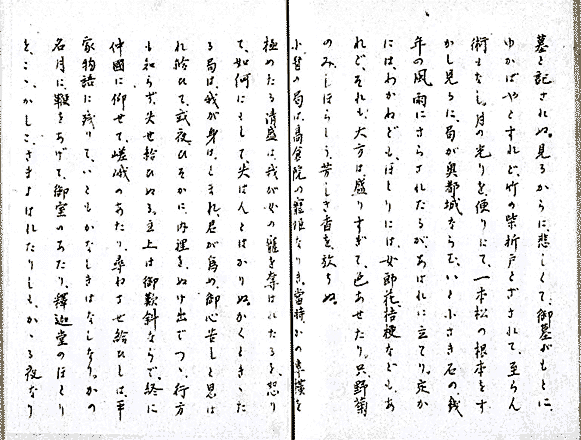 墓と記されぬ。見るからに、悲しくて、御墓がもとに、
ゆかばやとすれど、竹の柴折戸とざされて、至らん
術もなし。月の光りを、便りにて、一本松の根本をす
かし見るに、局が奥都城ならで、いと小さき石の幾
年の風雨にさらされたるが、あはれに立てり。定か
には、わかねども、ほとりには、女郎花、桔梗なども、あ
れど、それも、大方は盛りすぎて、色あせたり。只、野菊
のみ、しほらしう、芳しき香を放ちぬ。
小督の局は、高倉院の寵姫なりき。当時かの専横を
極めたる清盛は、我が女の寵を奪はれたるを、恐り
て、如何にもして、失はんとはかりぬ。かくとき、た
る局は、我が身は、ともあれ、君が為め、御心苦しと思は
れ給ひて、或夜ひそかに、内裡を、ぬけ出でつ、行方
も知らず、失せ給ひぬる。主上は御歎斜ならで、終に
仲国に仰せて、嵯峨のあたり、尋ねさせ給ひしは、平
家物語に残りて、いともかなしきはなしなり。かの
名月に、鞭をあげて、御室のあたり、釈迦堂のほとり
をこゝかしこ、さまよはれたりしも、かゝる夜なり